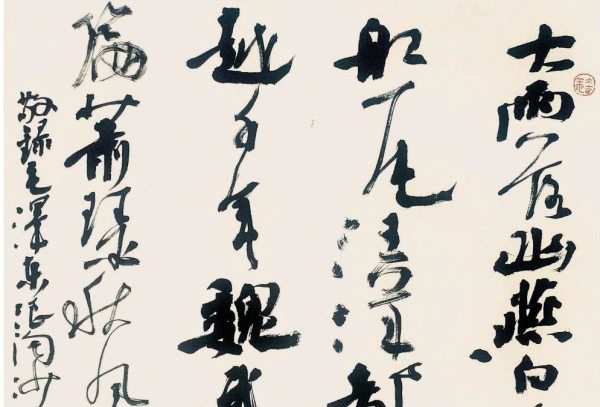 大雨落幽燕白
船一片汪洋都
越千年魏武
篇蕭瑟秋风
敬錄毛澤东浪淘沙